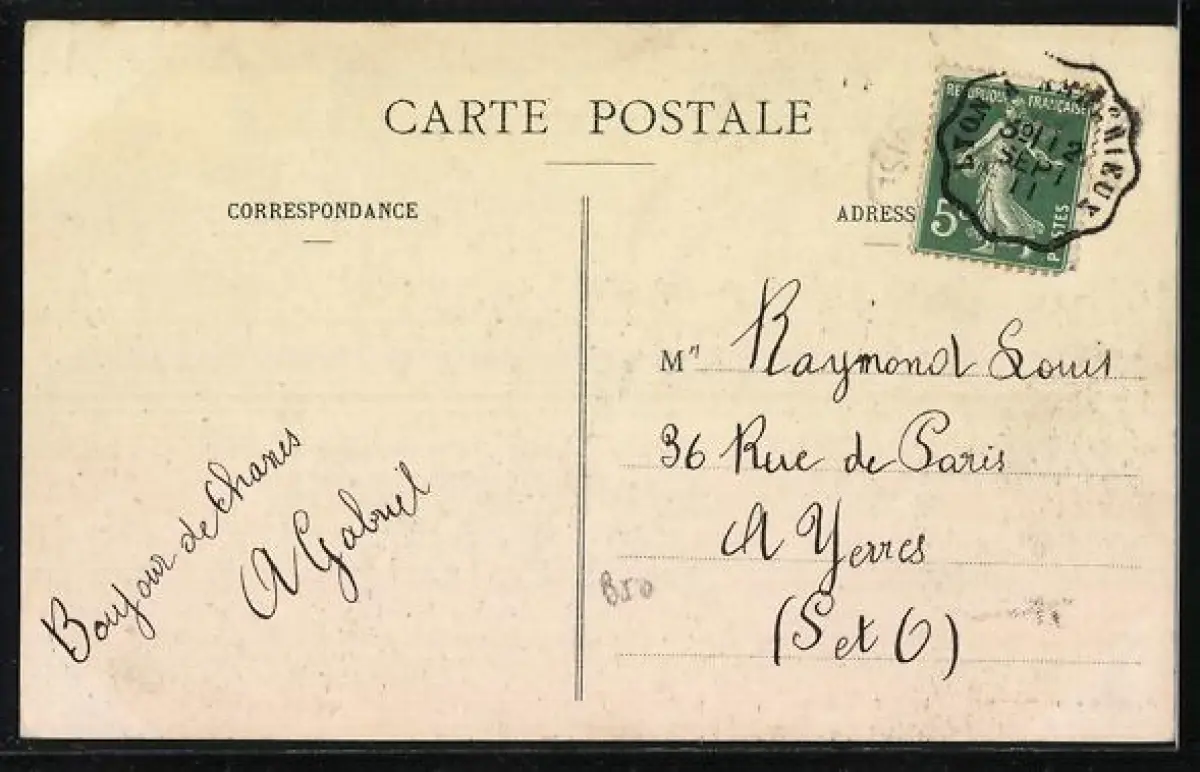 CARTE POSTALE
CORRESPONDANCE
ADRESS
REPUBLIQUE FRANÇAISE
5c
POSTES
LYON A
12
SEPT
11
Mr Raymond Louis
36 Rue de Paris
A Yerres
(S et O)
Bonjour de Chanes
A Gabriel
B50